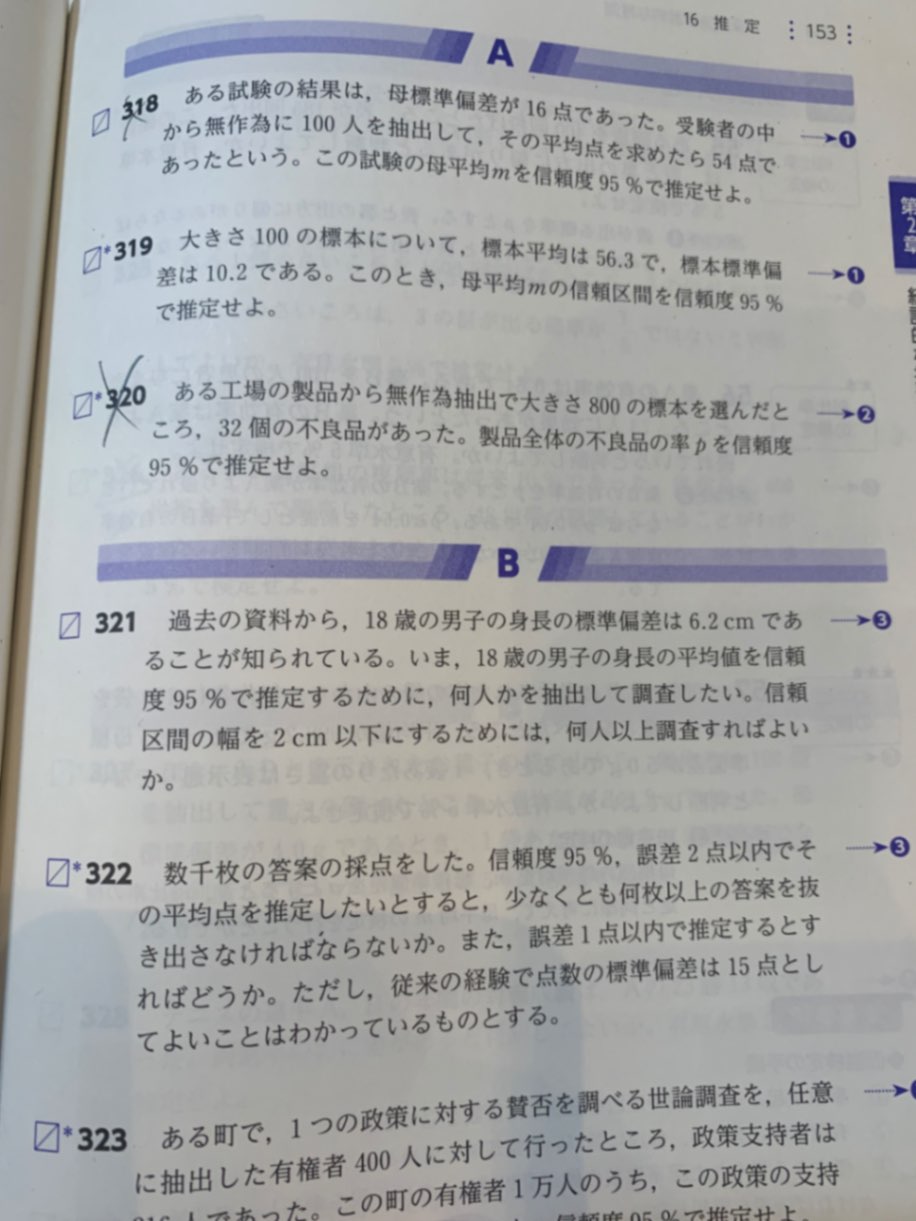 16 推 定 153
A
318 ある試験の結果は，母標準偏差が 16 点であった。受験者の中 →❶
から無作為に 100 人を抽出して，その平均点を求めたら 54 点で
あったという。この試験の母平均mを信頼度 95 %で推定せよ。
*319 大きさ 100 の標本について，標本平均は 56.3 で，標本標準偏 →❶
差は 10.2 である。このとき，母平均mの信頼区間を信頼度 95 %
で推定せよ。
*320 ある工場の製品から無作為抽出で大きさ 800 の標本を選んだと →❷
ころ，32 個の不良品があった。製品全体の不良品の率 p を信頼度
95 %で推定せよ。
B
321 過去の資料から，18 歳の男子の身長の標準偏差は 6.2 cm であ →❸
ることが知られている。いま，18 歳の男子の身長の平均値を信頼
度 95 %で推定するために，何人かを抽出して調査したい。信頼
区間の幅を 2 cm 以下にするためには，何人以上調査すればよい
か。
*322 数千枚の答案の採点をした。信頼度 95 %，誤差 2 点以内でそ →❸
の平均点を推定したいとすると，少なくとも何枚以上の答案を抜
き出さなければならないか。また，誤差 1 点以内で推定するとす
ればどうか。ただし，従来の経験で点数の標準偏差は 15 点とし
てよいことはわかっているものとする。
*323 ある町で，1 つの政策に対する賛否を調べる世論調査を，任意
に抽出した有権者 400 人に対して行ったところ，政策支持者は
人であった。この町の有権者 1 万人のうち，この政策の支持
信頼度 95 %で推定せよ。
第2章